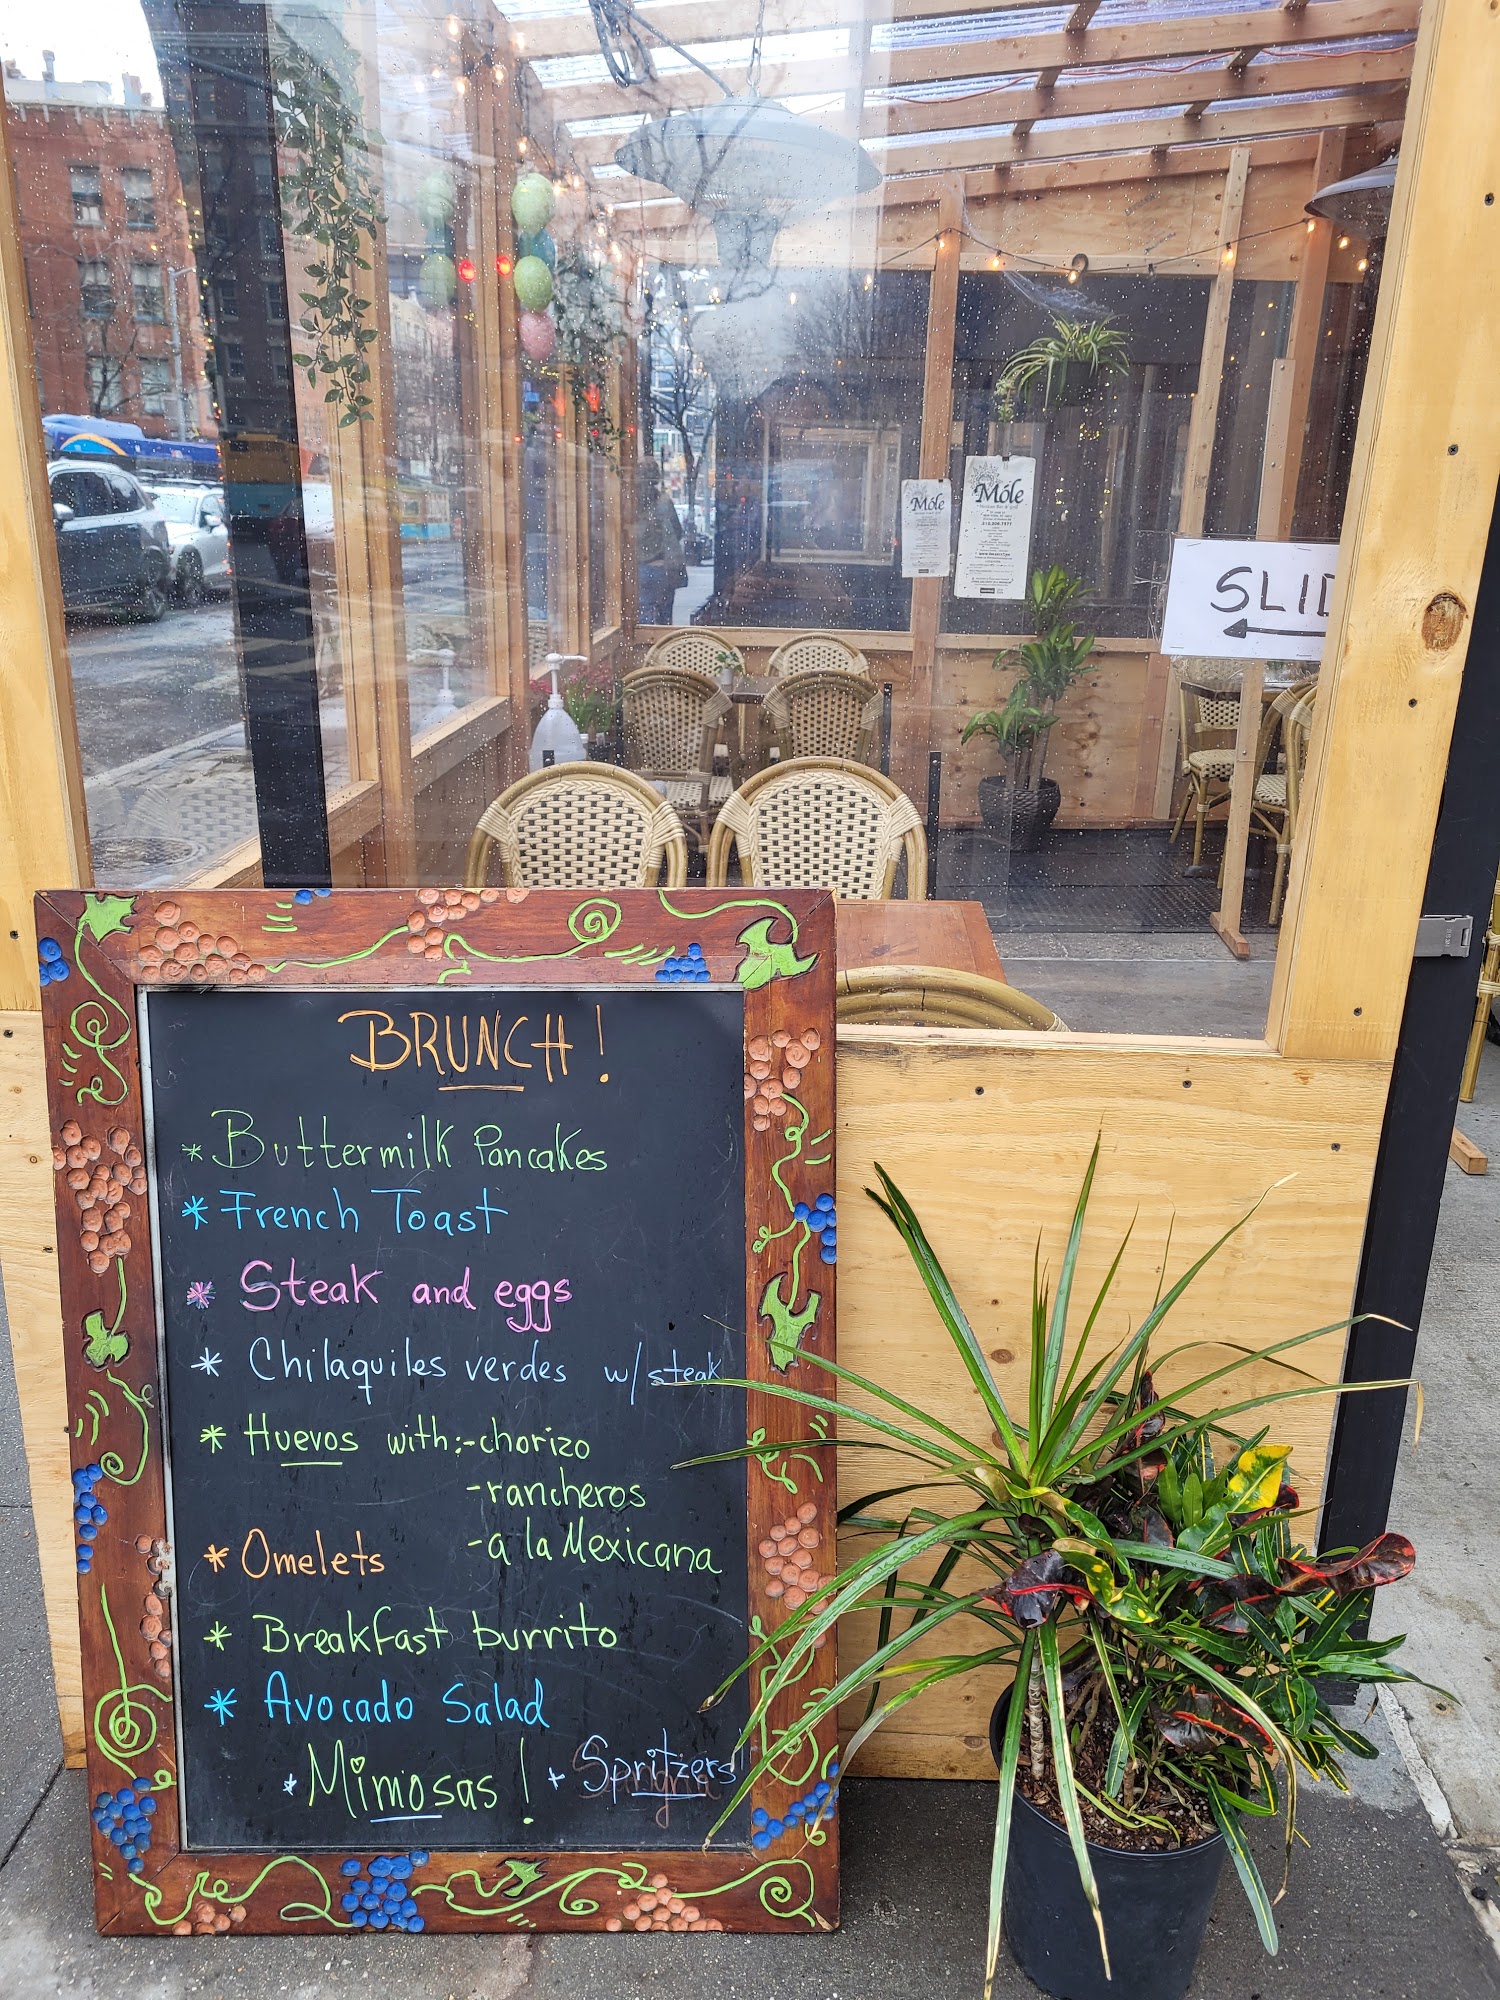 Móle
Móle
Mexican Bar & Grill
SLID
BRUNCH!
* Buttermilk Pancakes
* French Toast
* Steak and eggs
* Chilaquiles verdes w/ steak
* Huevos with:-chorizo
-rancheros
-a la Mexicana
* Omelets
* Breakfast burrito
* Avocado Salad
* Mimosas! + Spritzers!